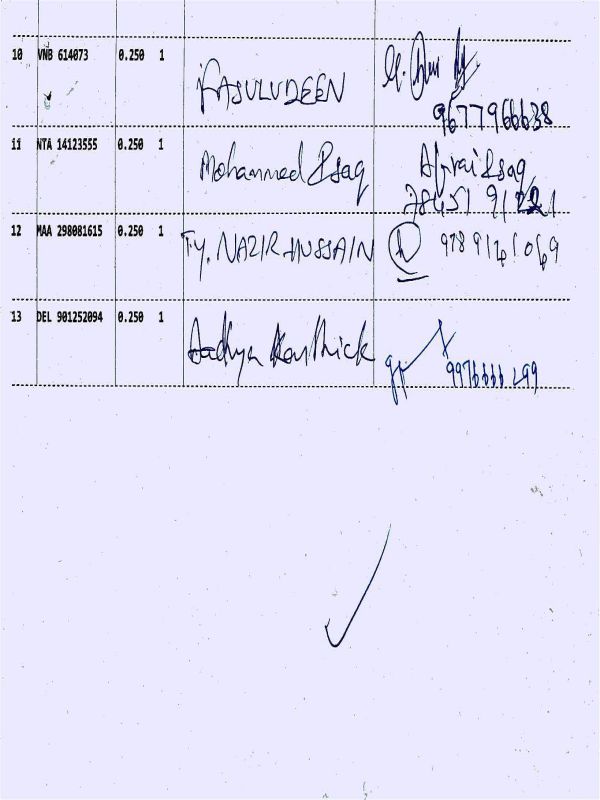 10 VNB 614073 0.250 1 FASULUDEEN
9677966638
11 NTA 14123555 0.250 1 Mohammed Isaq Afrai Isaq
78451 91221
12 MAA 298081615 0.250 1 Ty. NAZIR HUSSAIN
13 DEL 901252094 0.250 1 Aadhya Karthick
9976666299